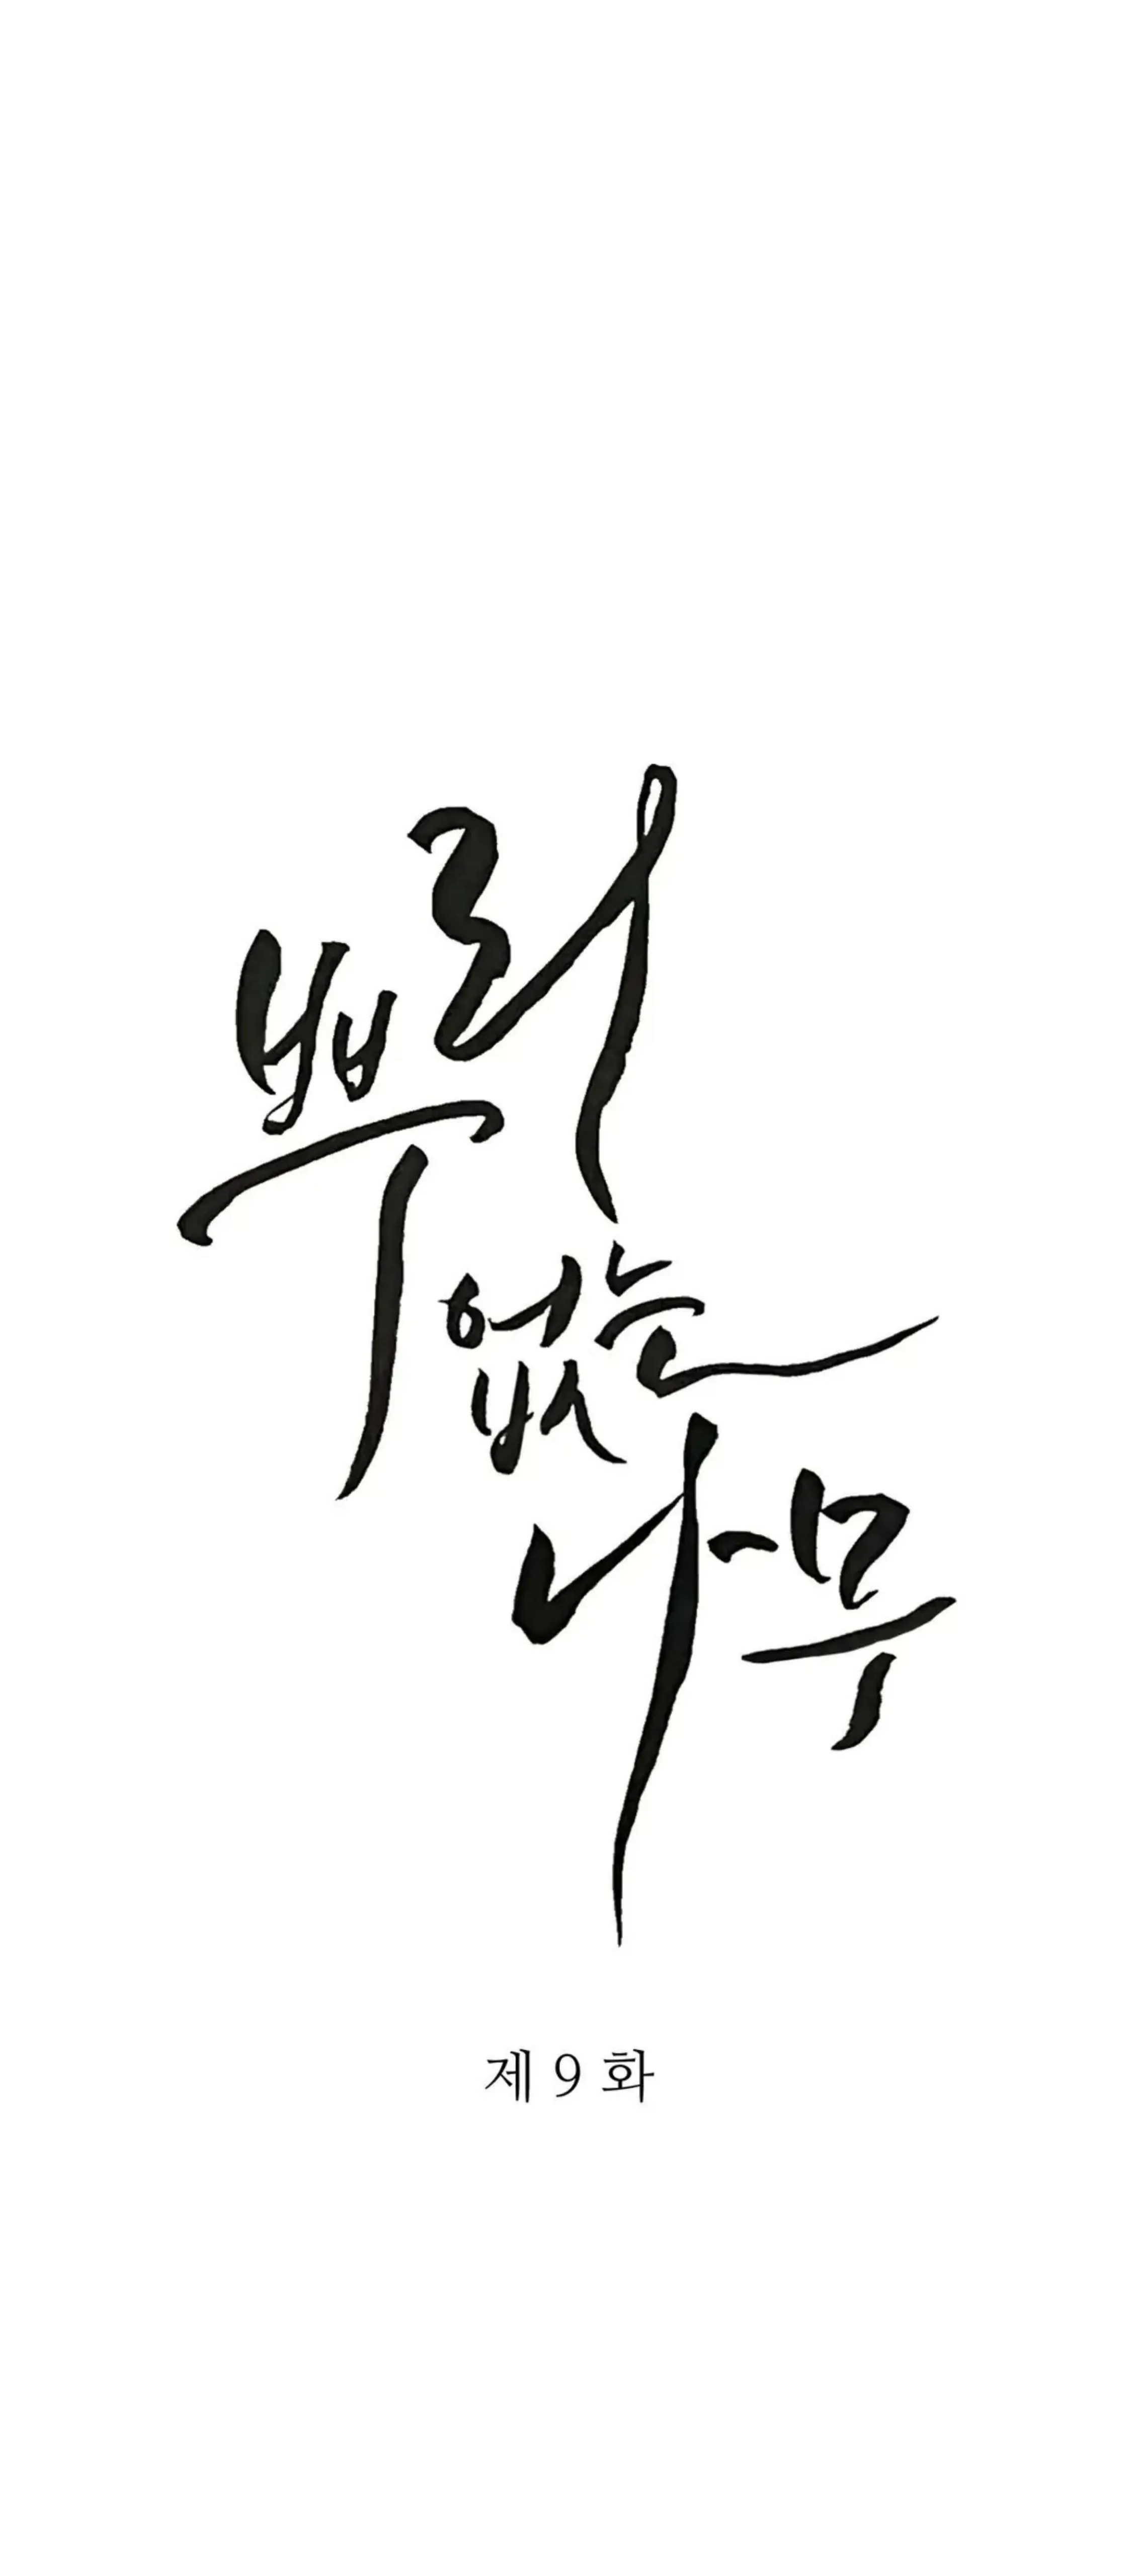 뿌리
없는
나무
제 9 화